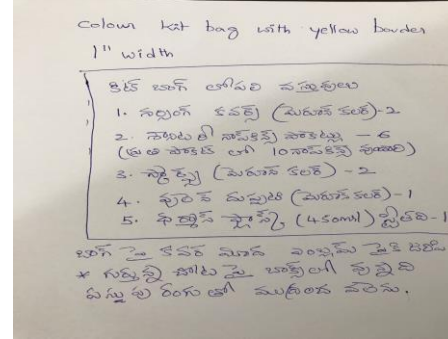 Colour kit bag with yellow border
1" width
కిట్ బాగ్ లోపలి వస్తువులు
1. నర్సింగ్ కవర్స్ (మెరూన్ కలర్) - 2
2. శానిటరీ నాప్కిన్స్ పాకెట్లు - 6
(ప్రతి పాకెట్ లో 10 నాప్కిన్స్ వుండాలి)
3. స్కార్ఫ్స (మెరూన్ కలర్) - 2
4. వులెన్ దుప్పటి (మెరూన్ కలర్) - 1
5. ఫ్లాస్క్ (450ml) స్టీల్ది - 1
బాగ్ పై కవర్ మీద ఎంబ్లమ్ పైకి
* గుర్తున్న చోట పై బాక్స్ లో వున్నది
పసుపు రంగు తో ముద్రించ వలెను.